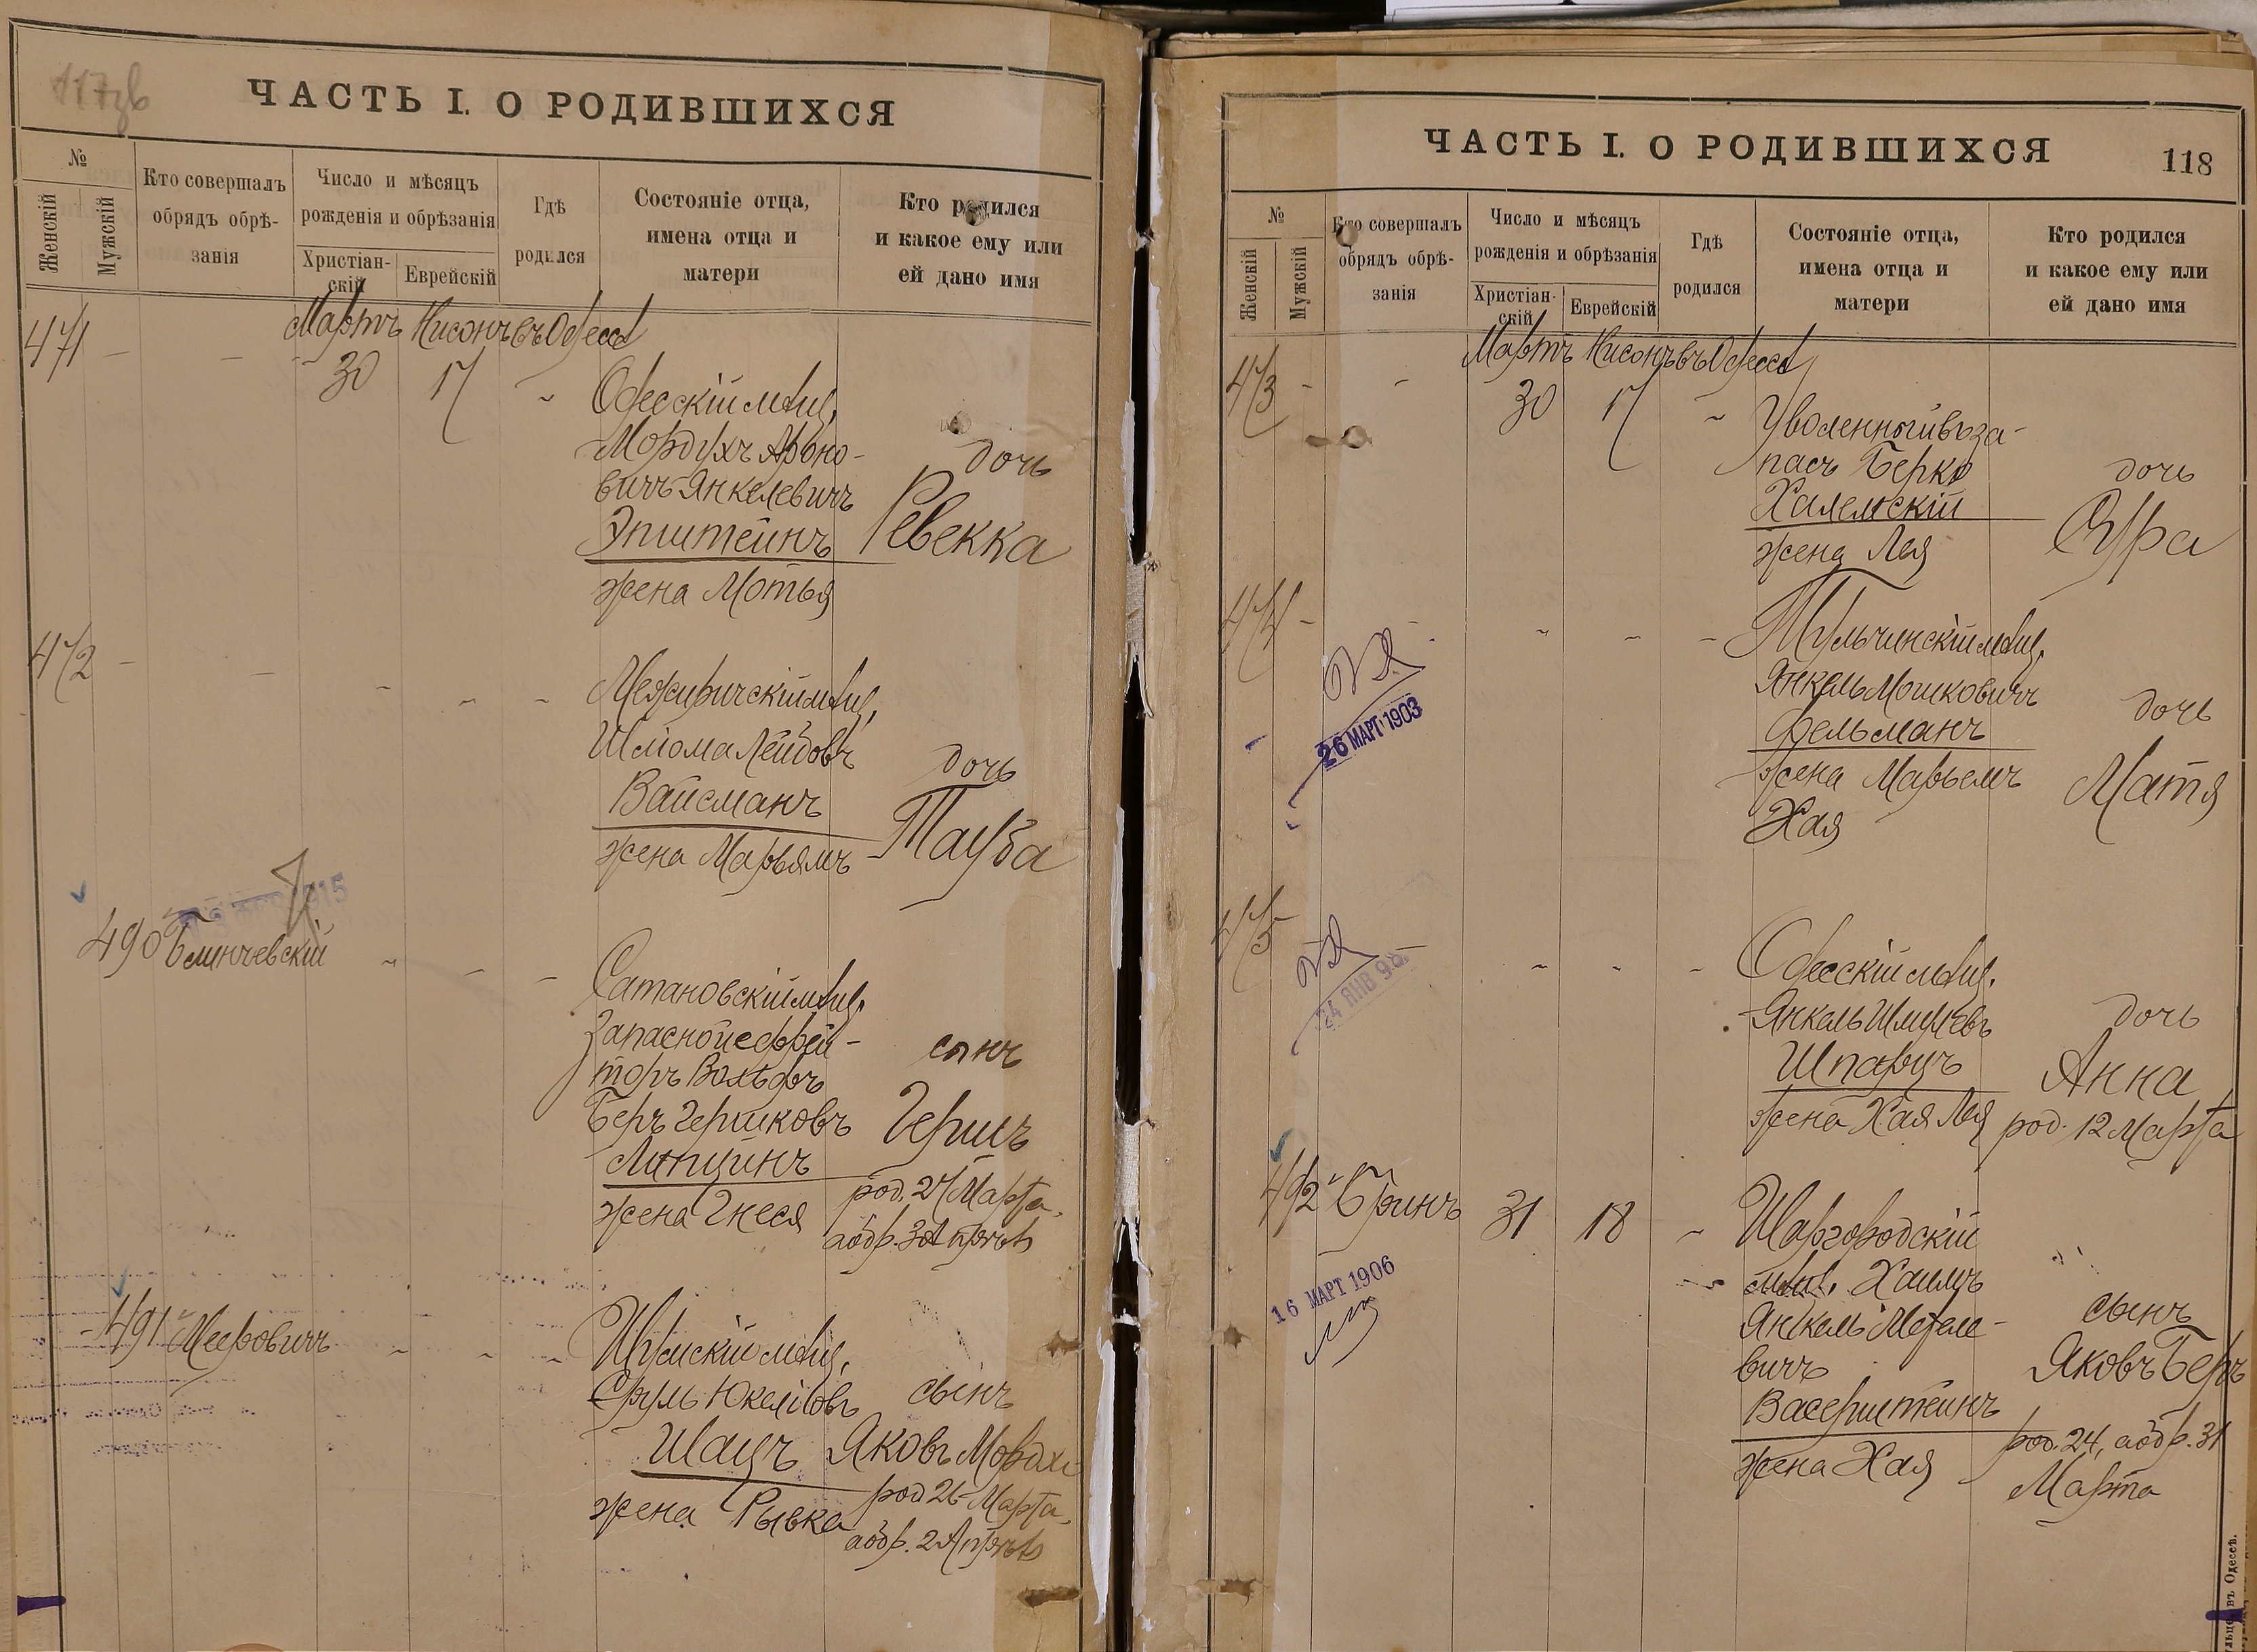 117зв
ЧАСТЬ I. О РОДИВШИХСЯ
№
Женскій
Мужскій
Кто совершалъ
обрядъ обрѣ-
занія
Число и мѣсяцъ
рожденія и обрѣзанія
Христіан-
скій
Еврейскій
Гдѣ
родился
Состояніе отца,
имена отца и
матери
Кто родился
и какое ему или
ей дано имя
Мартъ Нисонъ въ Одессѣ
471 - - 30 17 "
Одесскій мѣщ.
Мордухъ Ароно-
вичъ Янкелевичъ
Эпштейнъ
жена Мотья
дочь
Ревекка
472 - - " " "
Межиричскій мѣщ.
Шлiома Лейбовъ
Вайсманъ
жена Марьямъ
дочь
Тауба
1915
490 Блинчевскій " " "
Сатановскій мѣщ.
Запасной ефрей-
торъ Вольфъ
Беръ Гершковъ
Липцинъ
жена Гнеся
сынъ
Гершъ
род. 27 Марта,
а обр. 3 Апрѣля
491 Мееровичъ " " "
Шумскій мѣщ.
Сруль Юкелiовъ
Шацъ
жена Рывка
сынъ
Яковъ Мордхе
род 26 Марта,
а обр. 2 Апрѣля
ЧАСТЬ I. О РОДИВШИХСЯ
118
№
Женскій
Мужскій
Кто совершалъ
обрядъ обрѣ-
занія
Число и мѣсяцъ
рожденія и обрѣзанія
Христіан-
скій
Еврейскій
Гдѣ
родился
Состояніе отца,
имена отца и
матери
Кто родился
и какое ему или
ей дано имя
Мартъ Нисонъ въ Одессѣ
473 - - 30 17 "
Уволенный въ за-
пасъ Берко
Халемскій
жена Лея
дочь
Сура
474 - - " " "
Тульчинскій мѣщ.
Янкель Мошковичъ
Фельманъ
жена Марьемъ
Хая
дочь
Матя
26 МАРТ 1903
475 " " "
Одесскій мѣщ.
Янкель Шмулевъ
Шпарцъ
жена Хая Лея
дочь
Анна
род. 12 Марта
24 ЯНВ 98
492 Гринъ 31 18 "
Шаргородскій
мѣщ. Хаимъ
Янкель
вичъ
Васерштейнъ
жена Хая
сынъ
Яковъ Беръ
род. 24, а обр. 31
Марта
16 МАРТ 1906
въ Одессѣ.